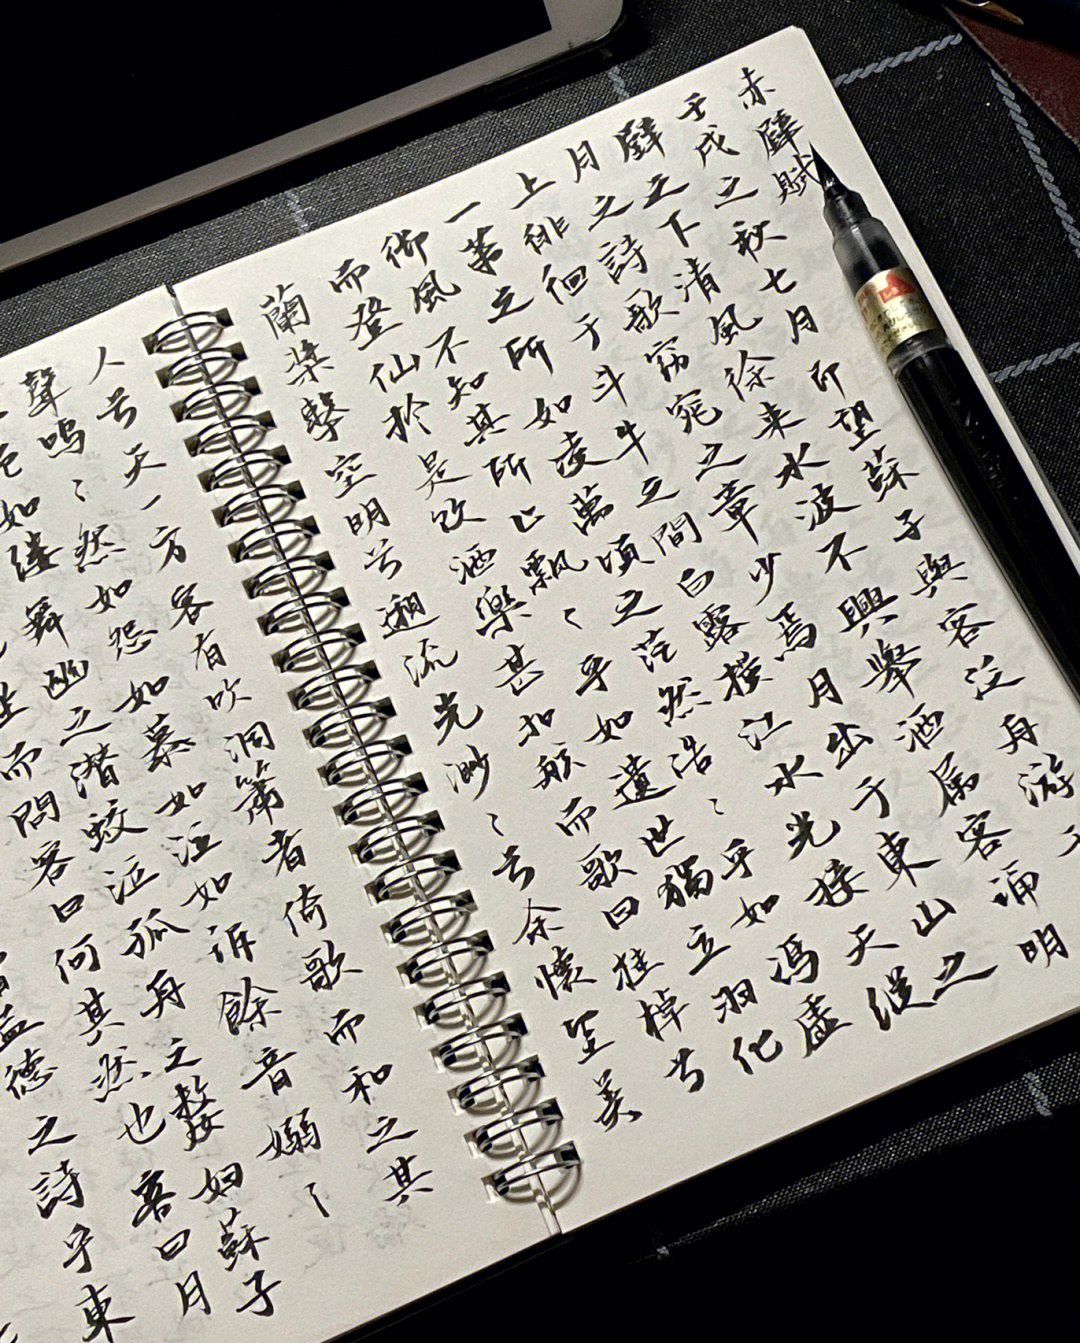 赤壁賦
壬戌之秋七月即望蘇子與客泛舟游于
壁之下清風徐来水波不興舉酒属客誦明
月之詩歌窈窕之章少焉月出于東山之
上徘徊于斗牛之間白露横江水光接天縱
一葦之所如凌萬頃之茫然浩〻乎如馮虚
御風不知其所止飄〻乎如遺世獨立羽化
而登仙於是飲酒樂甚扣舷而歌曰桂棹兮
蘭槳擊空明兮遡流光渺〻兮余懷望美
人兮天一方客有吹洞簫者倚歌而和之其
聲嗚〻然如怨如慕如泣如訴餘音嫋〻
如缕舞幽之潛蛟泣孤舟之嫠妇蘇子
坐而問客曰何其然也客曰月
孟德之詩乎東